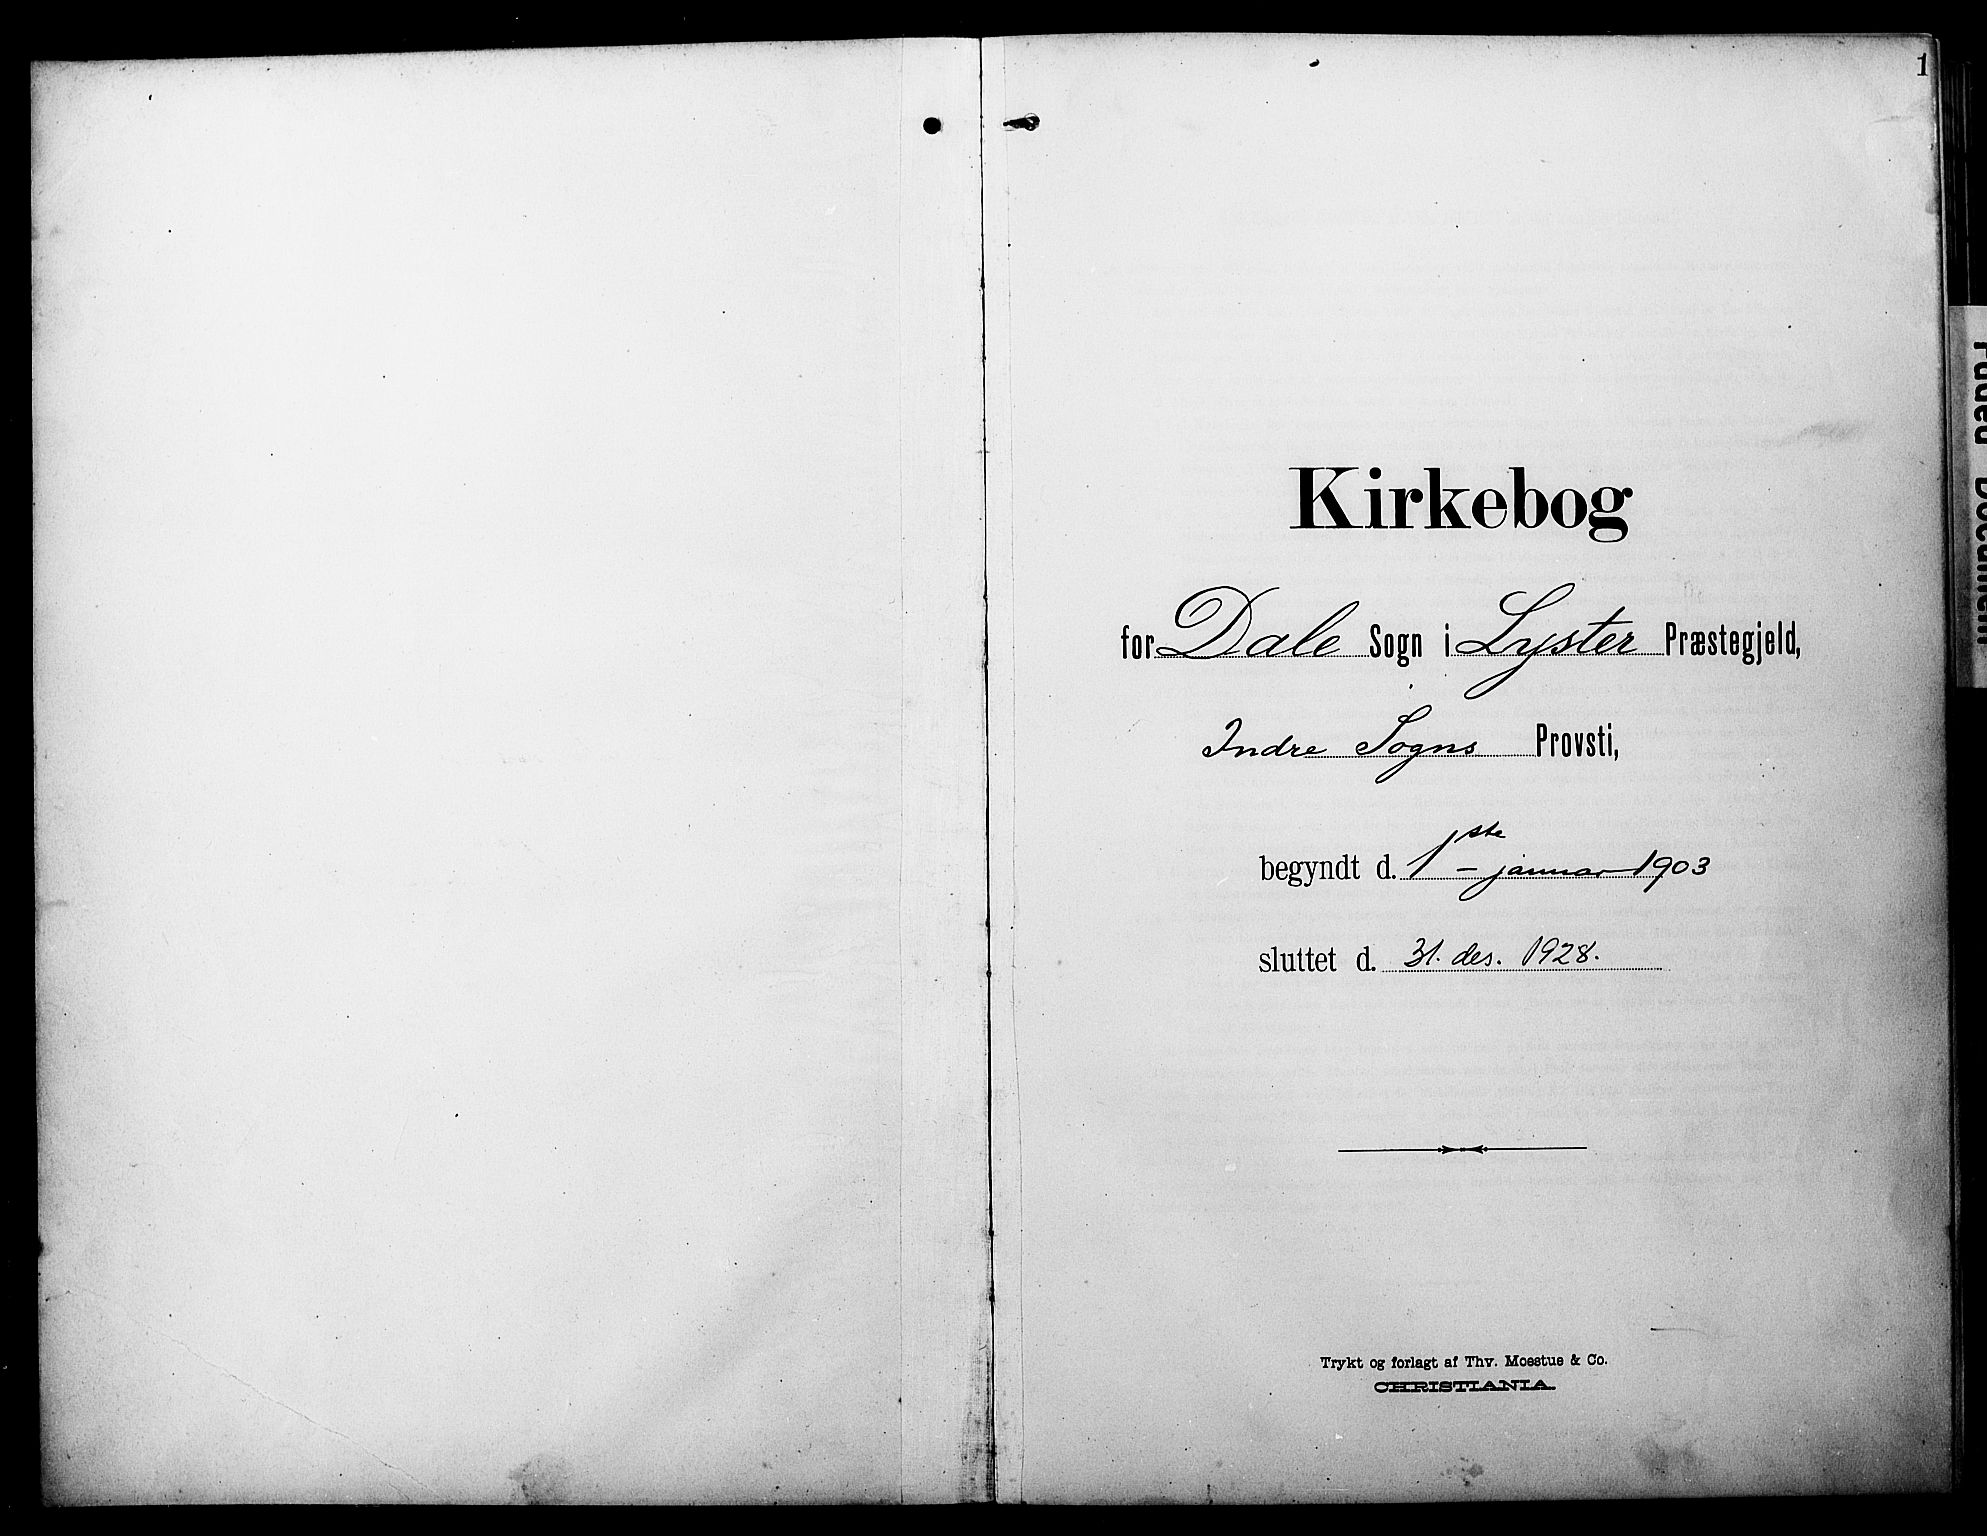 1
Kirkebog
for Dale Sogn i Lyster Præstegjeld,
Indre Sogns Provsti,
begyndt d. 1ste - januar 1903
sluttet d. 31. des. 1928.
Trykt og forlagt af Thv. Moestue & Co.
CHRISTIANIA.
Faded Document